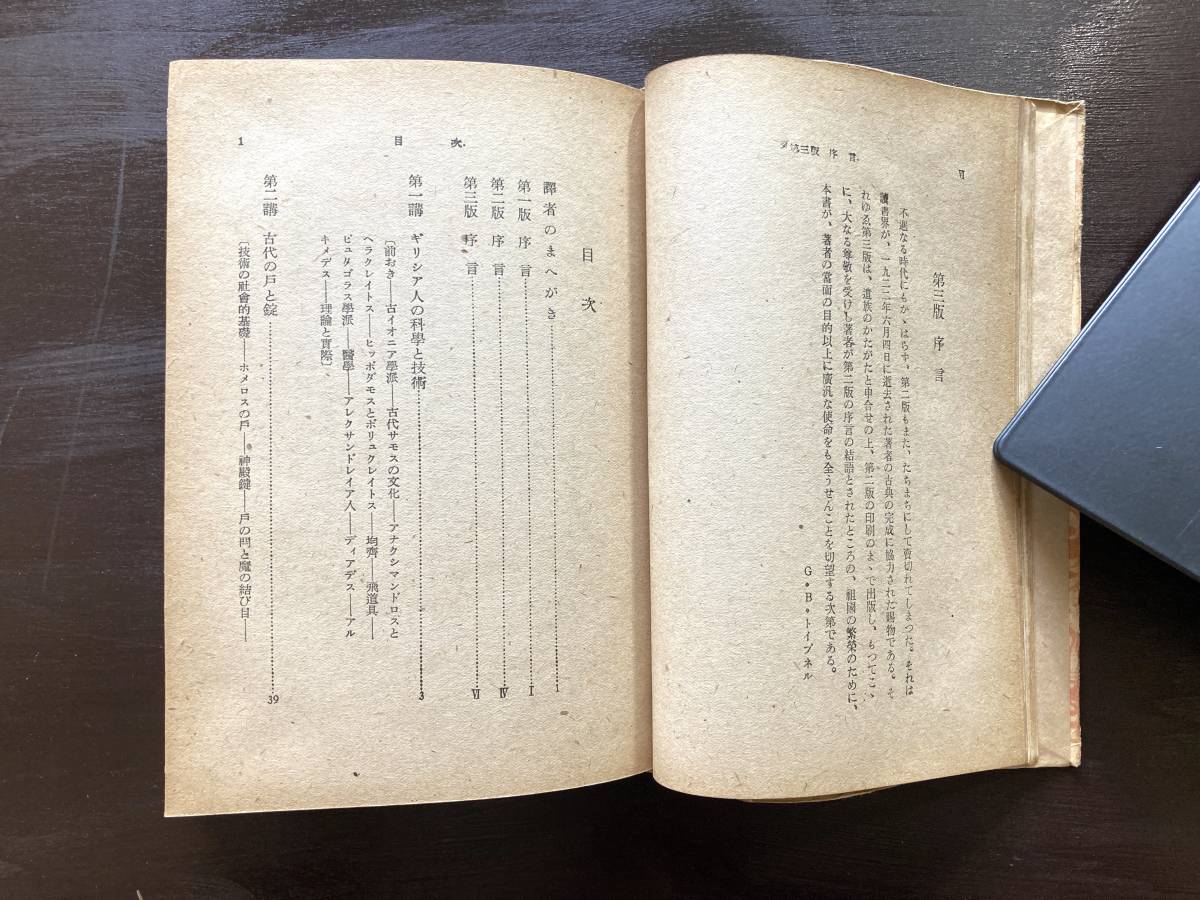 第三版 序言
Ⅵ
第三版 序言
不遇なる時代にもかゝはらず、第二版もまた、たちまちにして賣切れてしまつた。それは
讀書界が、一九二二年六月四日に逝去された著者の古典の完成に協力された賜物である。そ
れゆゑ第三版は、遺族のかたがたと申合せの上、第二版の印刷のまゝで出版し、もつてこゝ
に、大なる尊敬を受けし著者が第二版の序言の結語とされたところの、祖國の繁榮のために、
本書が、著者の當面の目的以上に廣汎な使命をも全うせんことを切望する次第である。
G・B・トイブネル
目次
1
目次
譯者のまへがき…………1
第一版 序言…………Ⅰ
第二版 序言…………Ⅳ
第三版 序言…………Ⅵ
第一講 ギリシア人の科學と技術…………3
〔前おき――古イオニア學派――古代サモスの文化――アナクシマンドロスと
ヘラクレイトス――ヒッポダモスとポリュクレイトス――均齊――飛道具――
ピュタゴラス學派――醫學――アレクサンドレイア人――ディアデス――アル
キメデス――理論と實際〕
第二講 古代の戸と錠…………39
〔技術の社會的基礎――ホメロスの戸――神殿鍵――戸の閂と魔の結び目――